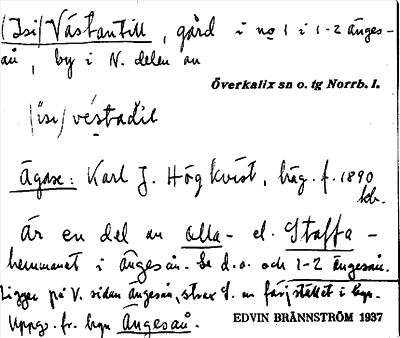 (Isi) Västantill, gård i no 1 i 1-2 änges-
ån, by i N. delen av
Överkalix sn o. tg Norrb. l.
(isi) véstadil
Ägare: Karl J. Högkvist, häg. f. 1890
är en del av Olla- el. Staffa-
hemmanet i Ängesån. Se d.o. och 1-2 Ängesån.
Ligger på V. sidan Ängesån, strax S. om färjstället i byn.
Uppg. fr. byn Ängesån.
EDVIN BRÄNNSTRÖM 1937